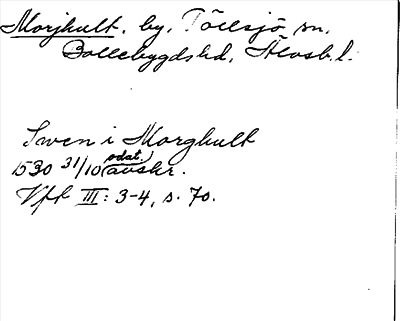 Morjhult, by, Töllsjö sn,
Bollebygds hd, Älvsb. l.
Swen i Morghult
1530 31/10 (odat. avskr.)
Vfl III: 3-4, s. 70.